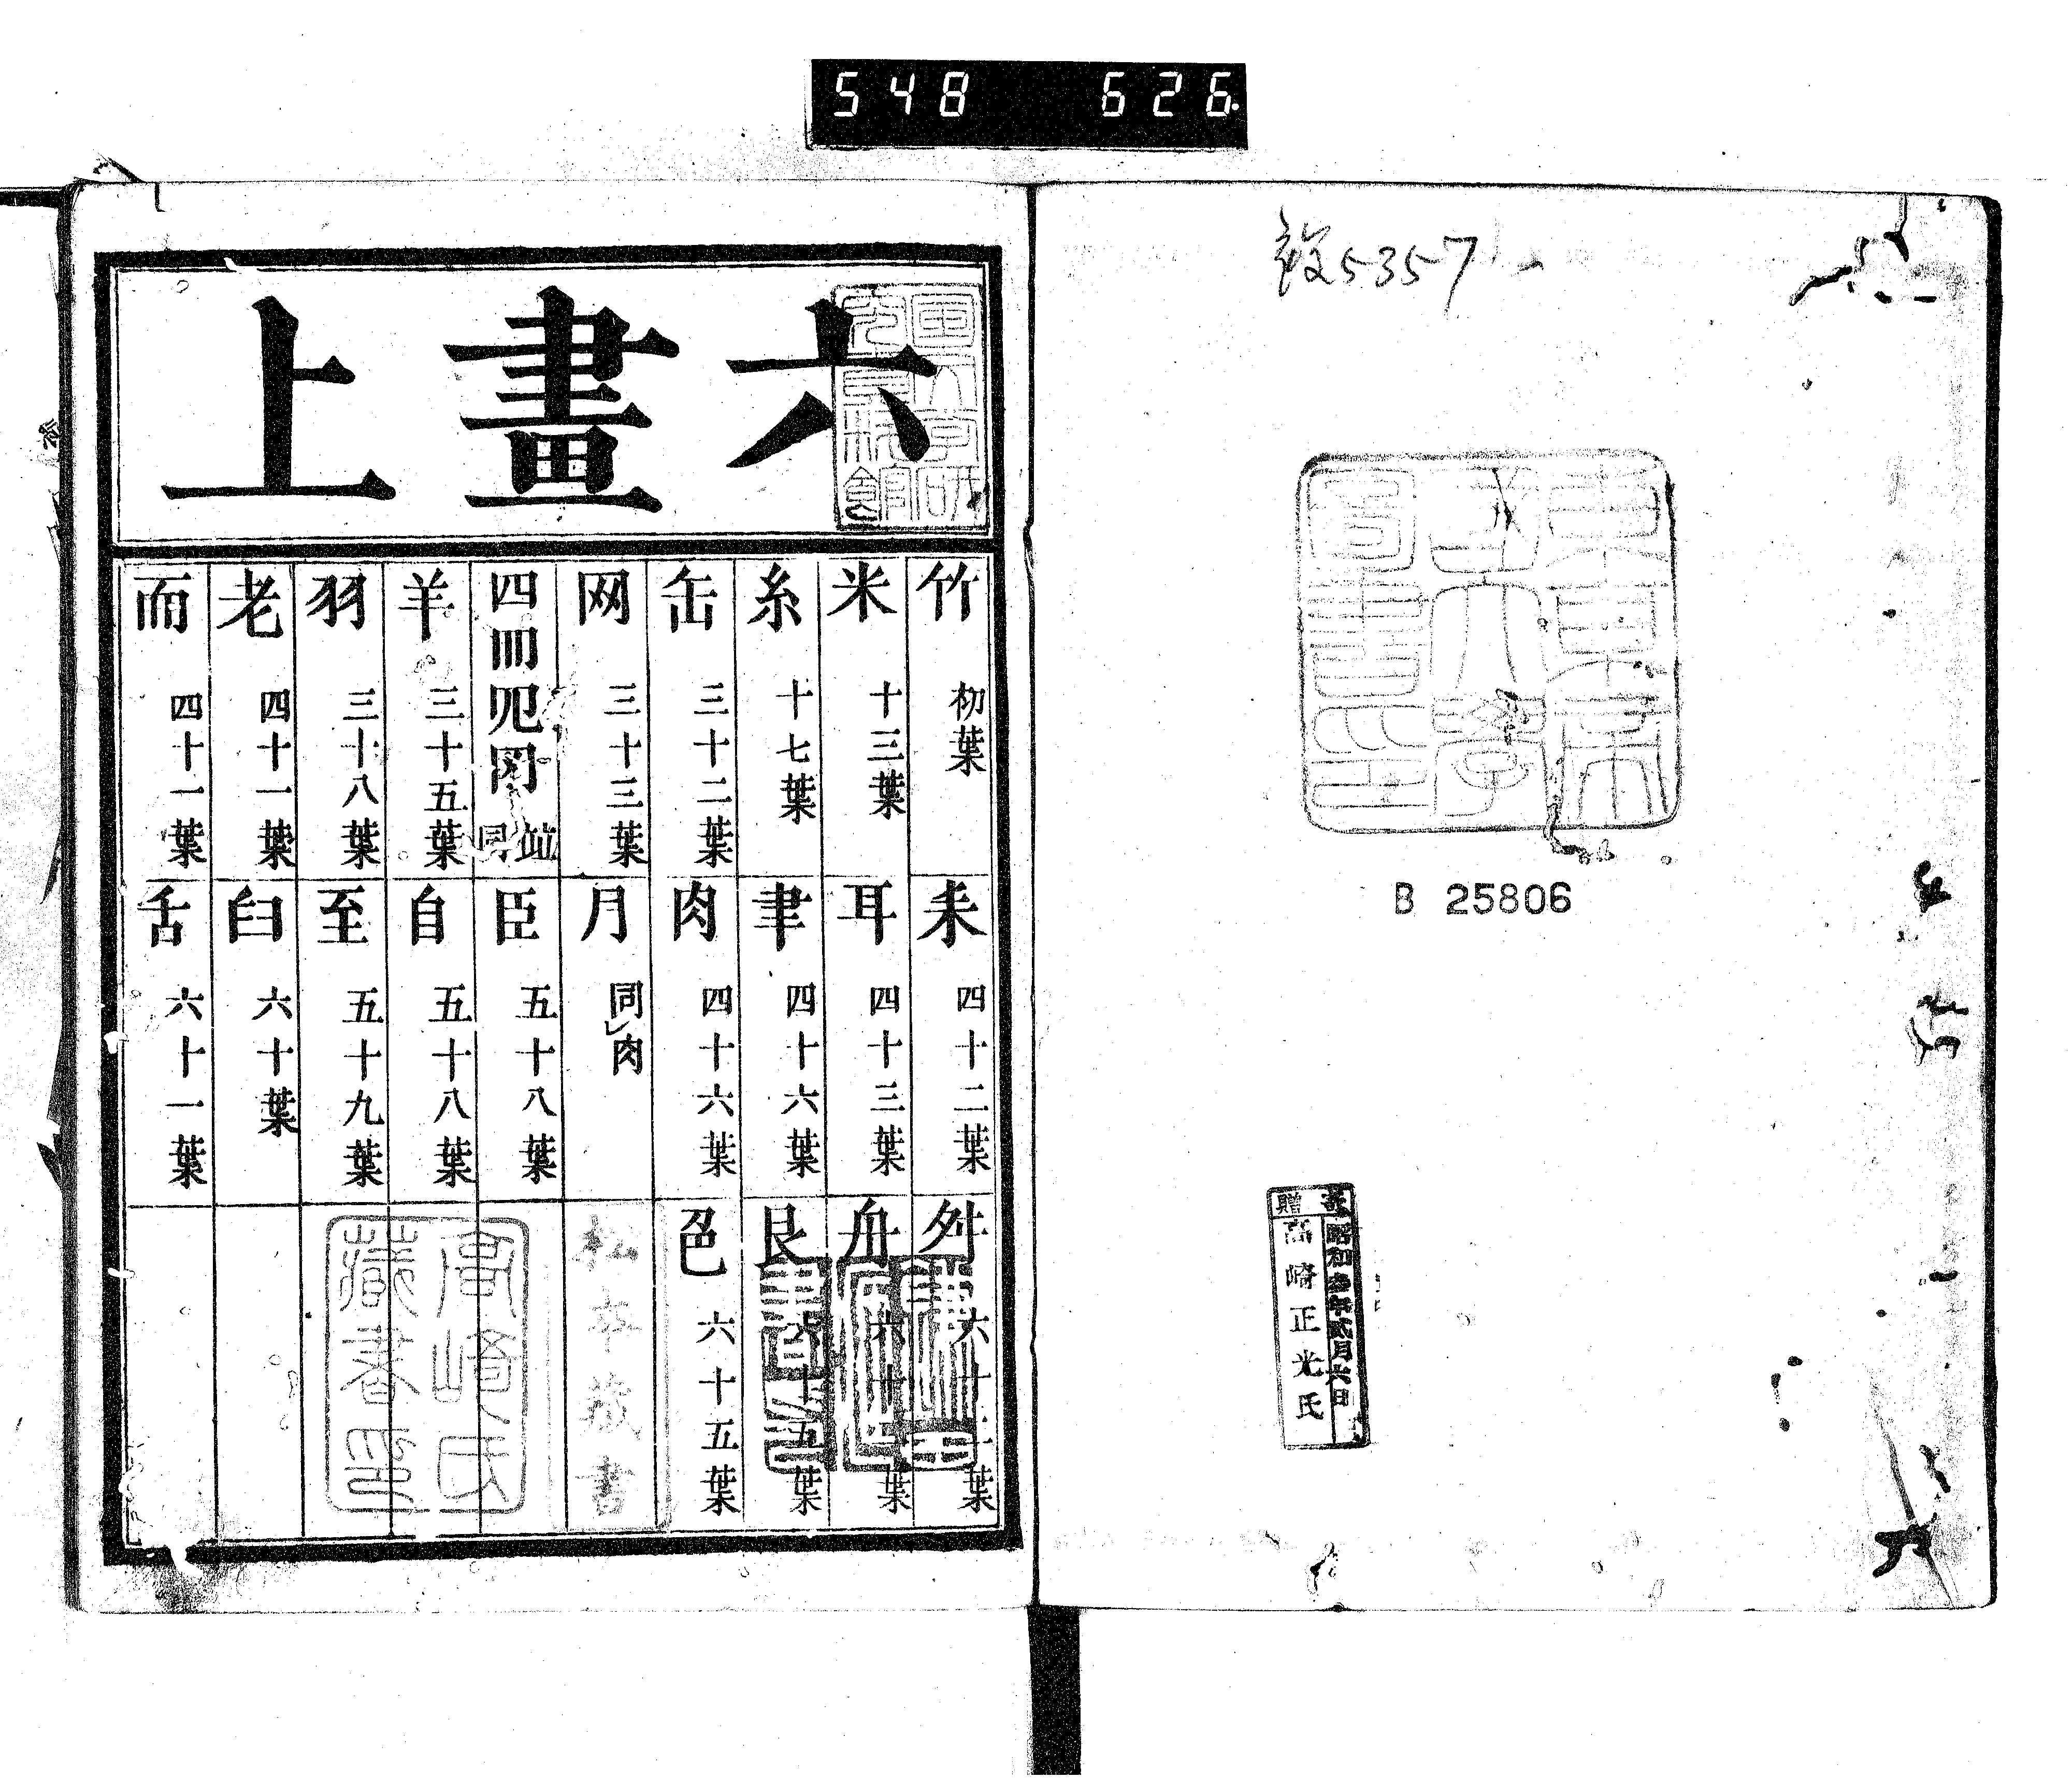 548 626
设5357
B 25806
寄贈
昭和 年 月六日
高崎正光氏
六畫上
竹 初葉
米 十三葉
糸 十七葉
缶 三十二葉
网 三十三葉
四 𦉪 𦉫 冈 並同
羊 三十五葉
羽 三十八葉
老 四十一葉
而 四十一葉
耒 四十二葉
耳 四十三葉
聿 四十六葉
肉 四十六葉
月 同レ肉
臣 五十八葉
自 五十八葉
至 五十九葉
臼 六十葉
舌 六十一葉
舛 六十二葉
舟 六十二葉
艮 六十五葉
色 六十五葉
高崎氏藏書印